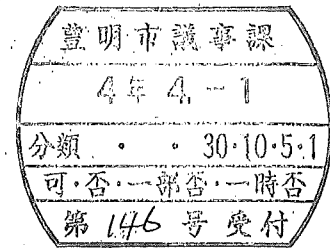 豊明市議事課
4年 4.-1
分類 ・ ・ 30・10・5・1
可・否・一部否・一時否
第 146 号受付